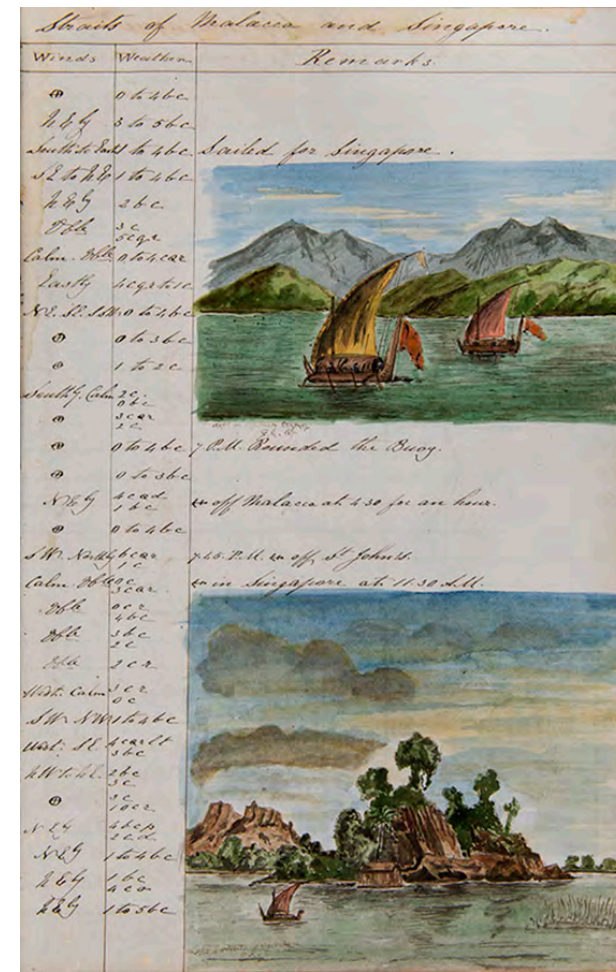 Straits of Malacca and Singapore.
Winds Weather Remarks.
0 to 4 b c
N E ly 3 to 5 b c
South to East 1 to 4 b c Sailed for Singapore.
S E to N E 1 to 4 b c
N E ly 2 b c
Vble 3 c
5 c q r
Calm. Vble 0 to 4 c q r
Eastly 4 c q r to 1 c
N E. S E. S W. 0 to 4 b c
0 to 3 b c
1 to 2 c
South ly. Calm 2 c.
0 b c
3 c q r
2 c
0 to 4 b c 7 P.M. Rounded the Buoy.
0 to 3 b c
N E ly 4 c q d
1 b c off Malacca at 4.30 for an hour.
0 to 4 b c
S W. 6 c q r 7.45. P.M. off St John's.
1 c
Calm. Vble 0 c in Singapore at 11.30 A.M.
3 c q r
Vble 0 c r
4 b c
Vble 3 b c
2 c
Vble 2 c r
West. Calm 3 c r
0 c
S W. N W. 1 to 4 b c
West. S E. 4 c q r l t
3 b c
N W to N E. 2 b c
3 c
3 c
1 0 c r
N E ly 4 b c p
2 c d
N E ly 1 to 4 b c
N E ly 1 b c
4 c o
N E ly 1 to 5 b c